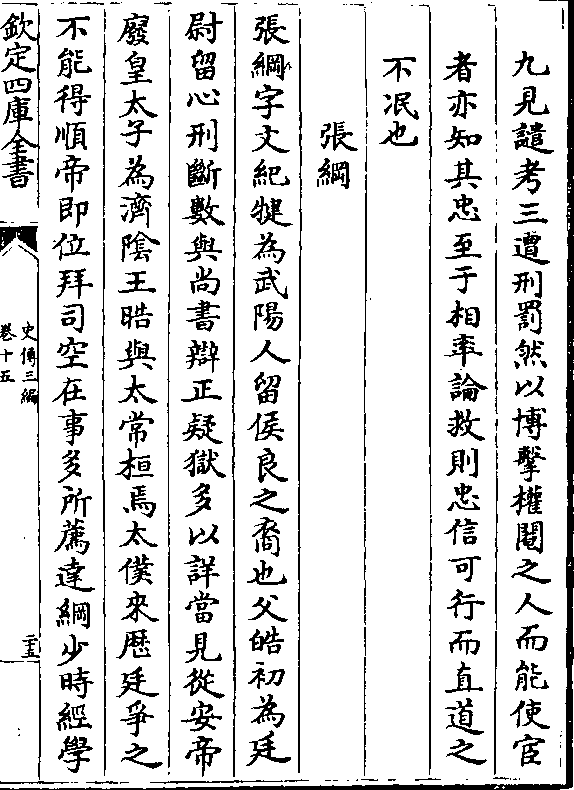 九見譴考三遭刑罰然以博擊權閹之人而能使宦
者亦知其忠至于相率論救則忠信可行而直道之
不泯也
張綱
張綱字文紀犍為武陽人留侯良之裔也父皓初為廷
尉留心刑斷數與尚書辯正疑獄多以詳當見從安帝
廢皇太子為濟陰王皓與太常桓焉太僕來歷廷爭之
不能得順帝即位拜司空在事多所薦達綱少時經學
欽定四庫全書
史傳三編
卷十五
二十五